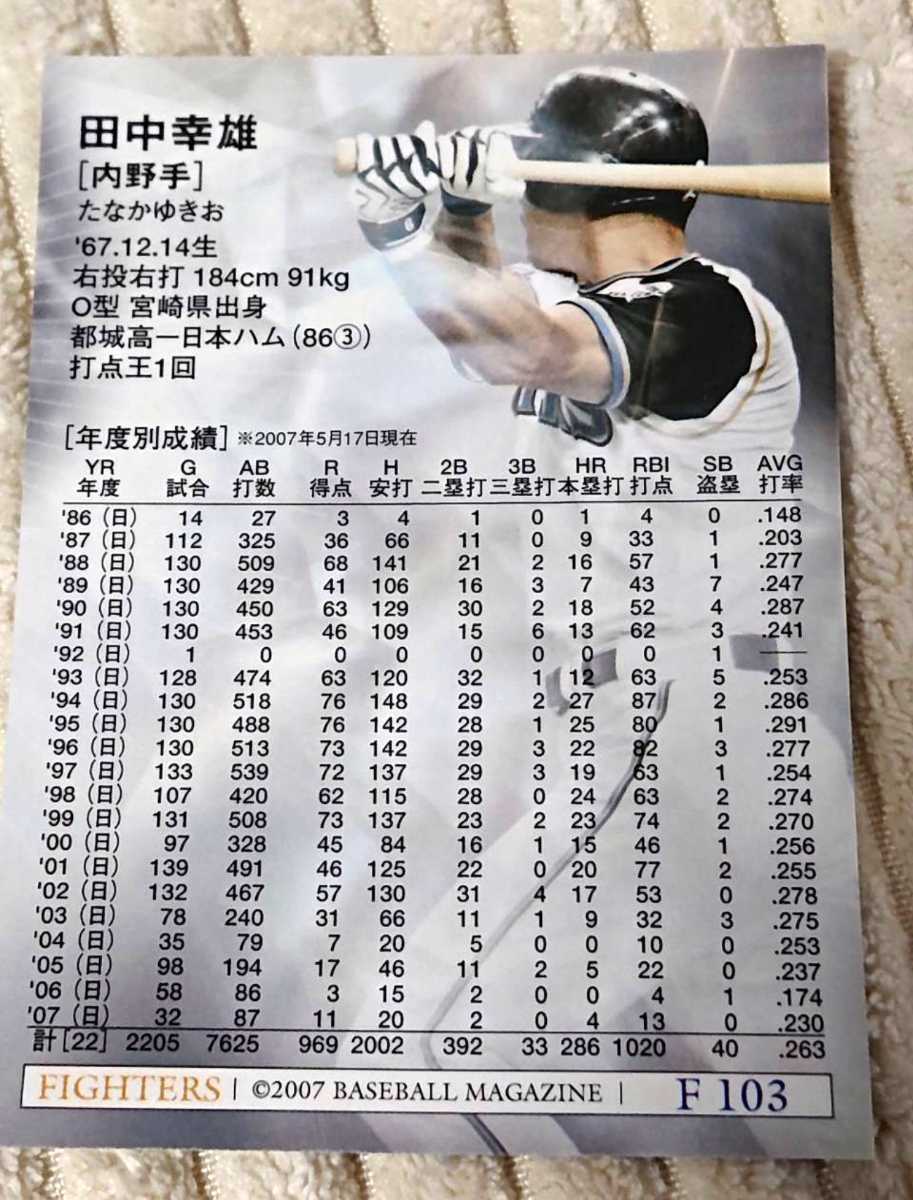 田中幸雄
[内野手]
たなかゆきお
'67.12.14生
右投右打 184cm 91kg
O型 宮崎県出身
都城高ー日本ハム(86③)
打点王1回
[年度別成績] ※2007年5月17日現在
YR G AB R H 2B 3B HR RBI SB AVG
年度 試合 打数 得点 安打 二塁打 三塁打 本塁打 打点 盗塁 打率
'86(日) 14 27 3 4 1 0 1 4 0 .148
'87(日) 112 325 36 66 11 0 9 33 1 .203
'88(日) 130 509 68 141 21 2 16 57 1 .277
'89(日) 130 429 41 106 16 3 7 43 7 .247
'90(日) 130 450 63 129 30 2 18 52 4 .287
'91(日) 130 453 46 109 15 6 13 62 3 .241
'92(日) 1 0 0 0 0 0 0 0 1 —
'93(日) 128 474 63 120 32 1 12 63 5 .253
'94(日) 130 518 76 148 29 2 27 87 2 .286
'95(日) 130 488 76 142 28 1 25 80 1 .291
'96(日) 130 513 73 142 29 3 22 82 3 .277
'97(日) 133 539 72 137 29 3 19 63 1 .254
'98(日) 107 420 62 115 28 0 24 63 2 .274
'99(日) 131 508 73 137 23 2 23 74 2 .270
'00(日) 97 328 45 84 16 1 15 46 1 .256
'01(日) 139 491 46 125 22 0 20 77 2 .255
'02(日) 132 467 57 130 31 4 17 53 0 .278
'03(日) 78 240 31 66 11 1 9 32 3 .275
'04(日) 35 79 7 20 5 0 0 10 0 .253
'05(日) 98 194 17 46 11 2 5 22 0 .237
'06(日) 58 86 3 15 2 0 0 4 1 .174
'07(日) 32 87 11 20 2 0 4 13 0 .230
計[22] 2205 7625 969 2002 392 33 286 1020 40 .263
FIGHTERS | ©2007 BASEBALL MAGAZINE | F 103